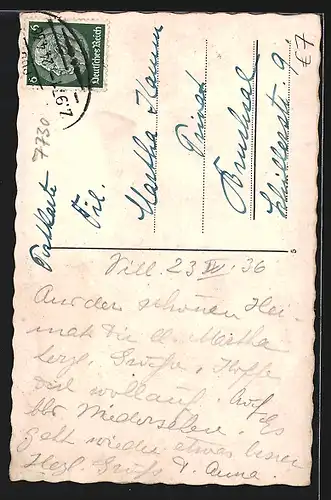 Deutsches Reich
6 6
7730
€7
Postkarte
Frl.
Martha Hamm
Privat
Bruchsal
Schillerstr. 9
5
Vill. 23 IV. 36
Aus der schönen Hei-
mat Dir lb. Martha
herzl. Grüße. Hoffe
Dich wohlauf. Auf
bld. Wiedersehen. Es
geht wieder etwas besser
Herzl. Gruß Anna.